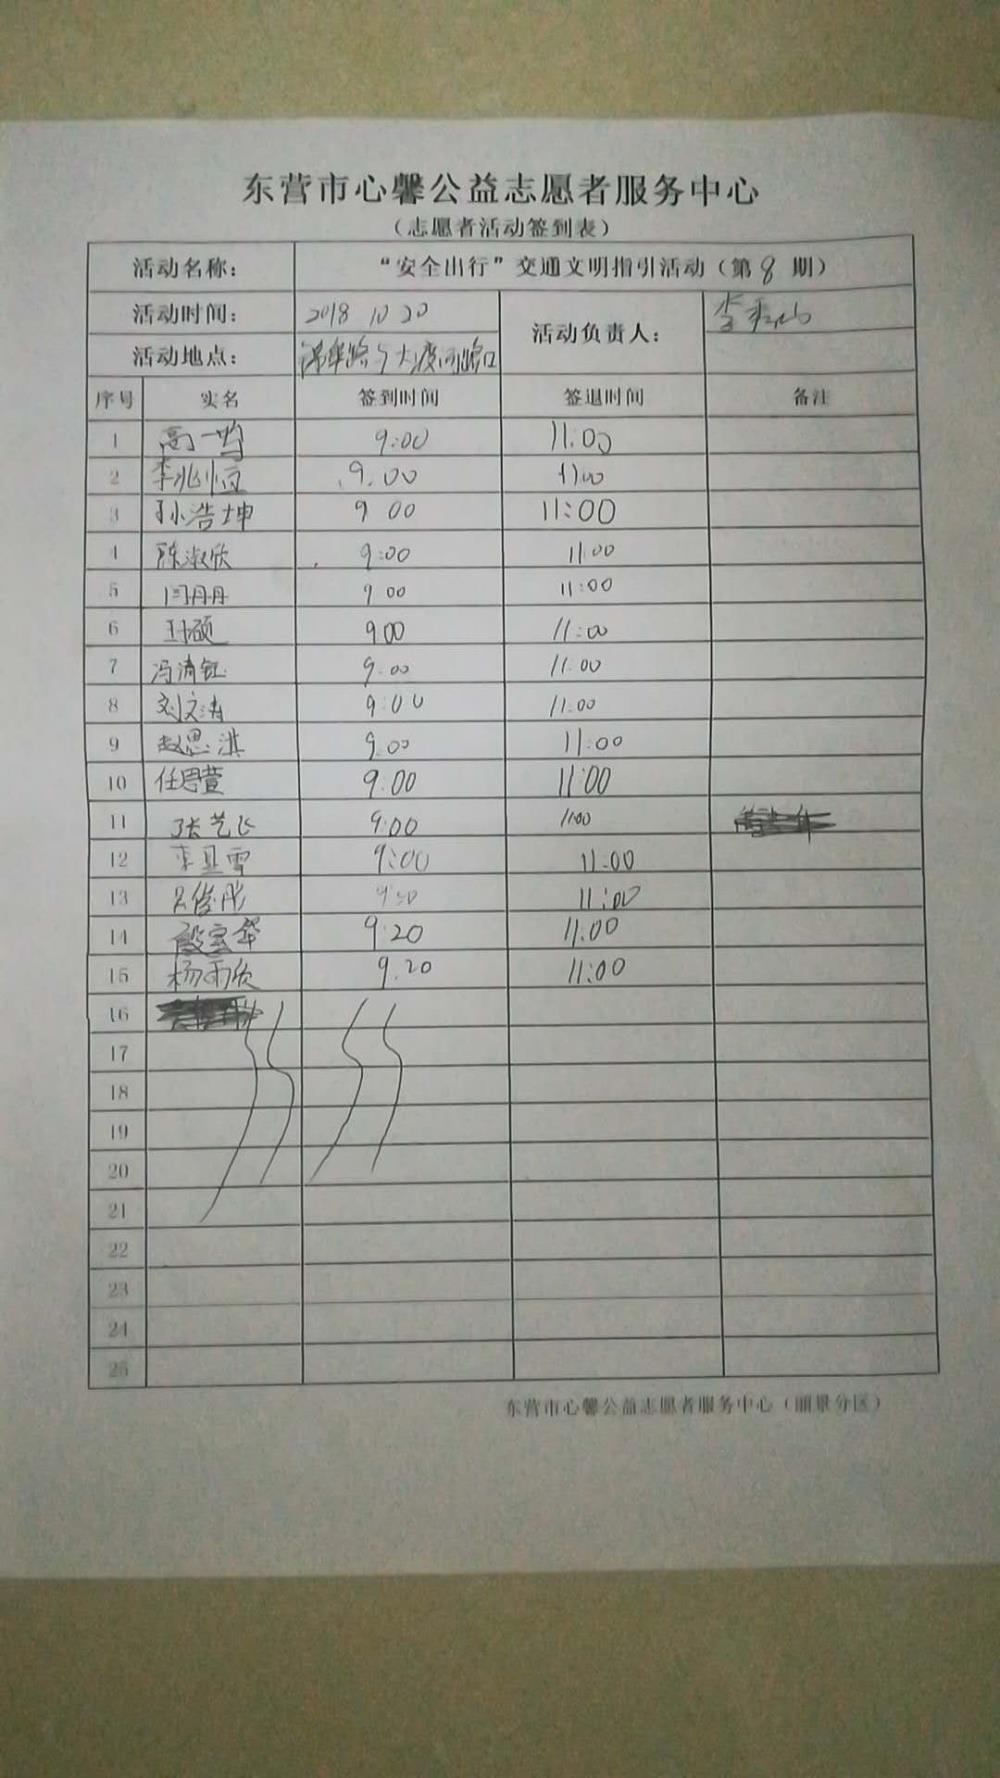 东营市心馨公益志愿者服务中心
（志愿者活动签到表）
活动名称： “安全出行”交通文明指引活动（第 8 期）
活动时间： 2018 10 20 活动负责人： 李
活动地点： 路与大渡河路口
序号 实名 签到时间 签退时间 备注
1 高一鸣 9:00 11.00
2 李兆恒 9.00 11.00
3 孙浩坤 9 00 11:00
4 陈淑欣 9:00 11:00
5 闫丹丹 9 00 11:00
6 王硕 9.00 11:00
7 冯清钰 9.00 11.00
8 刘文涛 9:00 11:00
9 赵思淇 9.00 11:00
10 任思萱 9.00 11:00
11 张艺飞 9:00 11:00
12 李亚雪 9:00 11:00
13 吕俊彤 11:00
14 殷宝华 9.20 11.00
15 杨雨欣 9.20 11:00
16
17
18
19
20
21
22
23
24
25
东营市心馨公益志愿者服务中心（丽景分区）